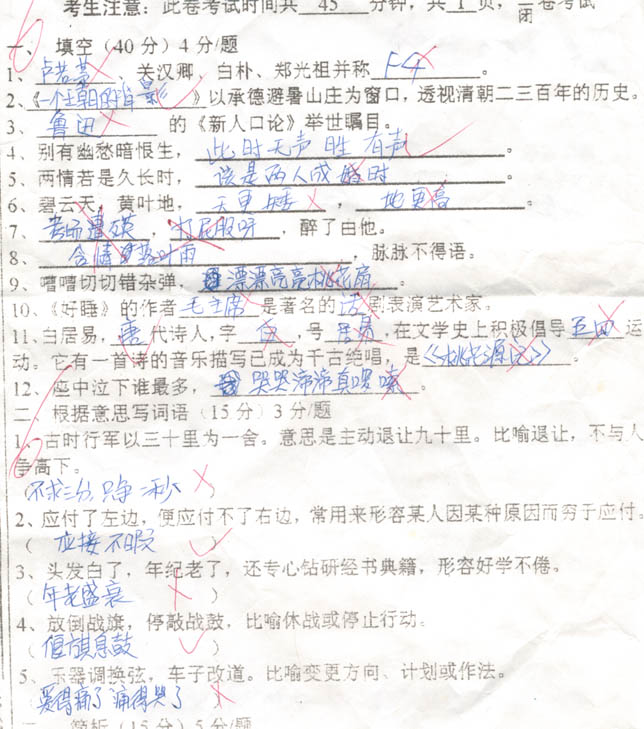 考生注意：此卷考试时间共 45 分钟，共 1 页，闭卷考试
一、填空（40分）4分/题
1、卢若营，关汉卿，白朴、郑光祖并称 F4 。
2、《一个王朝的背影》以承德避暑山庄为窗口，透视清朝二三百年的历史。
3、鲁迅 的《新人口论》举世瞩目。
4、别有幽愁暗恨生，此时无声胜有声 。
5、两情若是久长时，该是两人成婚时 。
6、碧云天，黄叶地，天更矮，地更高 。
7、考而遭殃，打屁股呀，醉了由他。
8、含情 叶雨，脉脉不得语。
9、嘈嘈切切错杂弹，漂漂亮亮桃花扇。
10、《好睡》的作者 毛主席 是著名的 话 剧表演艺术家。
11、白居易，唐 代诗人,字 白 ,号 ,在文学史上积极倡导 五四 运
动。它有一首诗的音乐描写已成为千古绝唱，是《桃花源记》。
12、座中泣下谁最多，哭哭渧渧真啰嗦。
二 根据意思写词语（15分）3分/题
1、古时行军以三十里为一舍。意思是主动退让九十里。比喻退让，不与人
争高下。
（不求三分，只争二秒）
2、应付了左边，便应付不了右边，常用来形容某人因某种原因而穷于应付。
（应接不暇）
3、头发白了，年纪老了，还专心钻研经书典籍，形容好学不倦。
（年老盛衰）
4、放倒战旗，停敲战鼓，比喻休战或停止行动。
（偃旗息鼓）
5、乐器调换弦，车子改道。比喻变更方向、计划或作法。
哭得痛了 痛得哭了）
简析（15分）5分/题